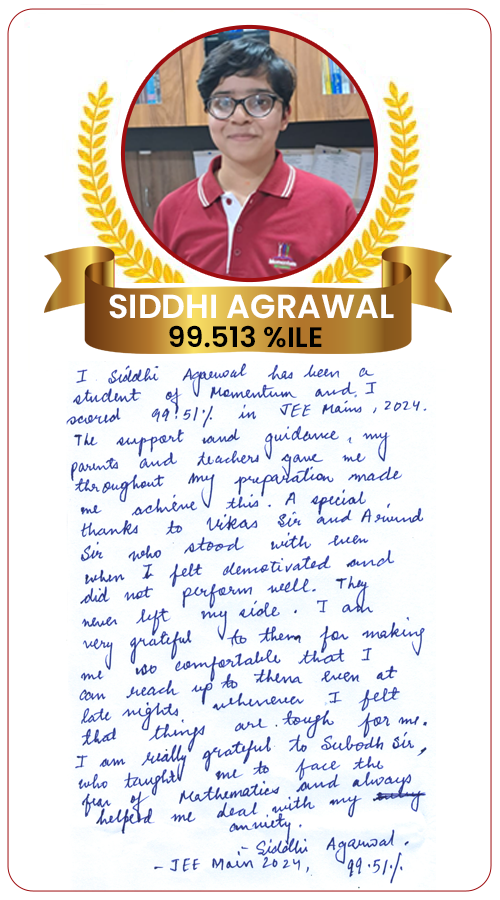 SIDDHI AGRAWAL
99.513 %ILE
I Siddhi Agarwal has been a
student of Momentum and I
scored 99.51% in JEE Mains, 2024.
The support and guidance, my
parents and teachers gave me
throughout my preparation made
me achieve this. A special
thanks to Vikas Sir and Arvind
Sir who stood with even
when I felt demotivated and
did not perform well. They
never left my side. I am
very grateful to them for making
me so comfortable that I
can reach up to them even at
late nights whenever I felt
that things are tough for me.
I am really grateful to Subodh Sir,
who taught me to face the
fear of Mathematics and always
helped me deal with my
anxiety.
- Siddhi Agarwal.
- JEE Main 2024, 99.51%